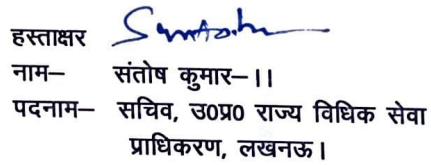 हस्ताक्षर
नाम– संतोष कुमार–।।
पदनाम– सचिव, उ0प्र0 राज्य विधिक सेवा
प्राधिकरण, लखनऊ।